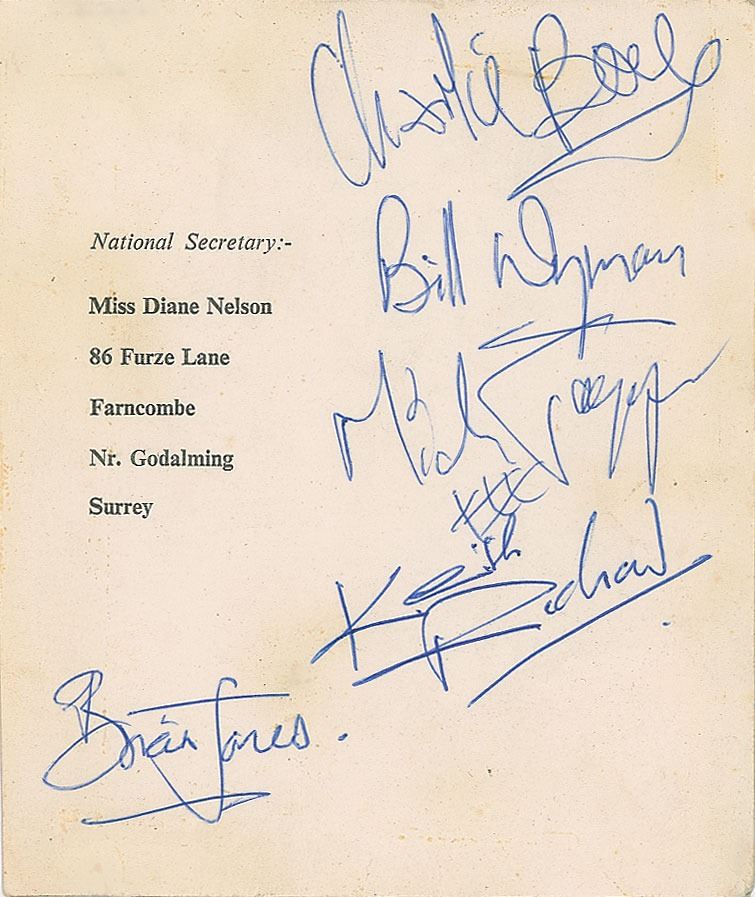 National Secretary:-
Miss Diane Nelson
86 Furze Lane
Farncombe
Nr. Godalming
Surrey
Charlie Boy
Bill Wyman
Mick Jagger
xxx
Keith
Richard
Brian Jones.